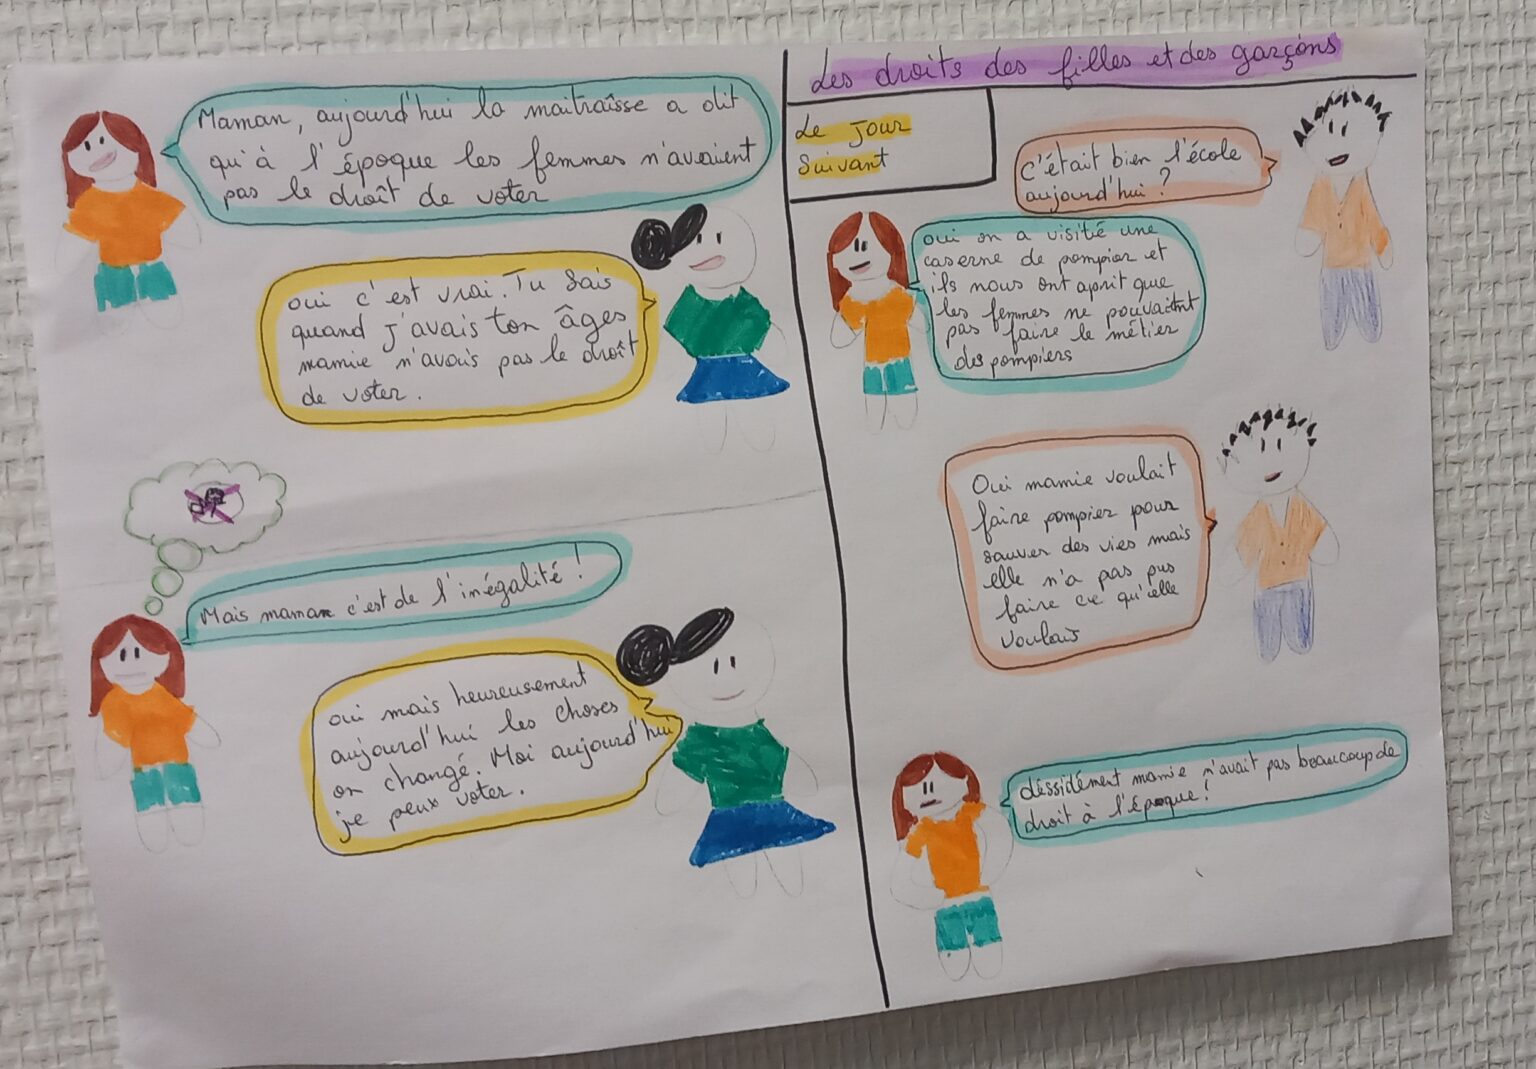 Maman, aujourd'hui la maitraîsse a dit
qu'à l'époque les femmes n'avaient
pas le droît de voter
oui c'est vrai. Tu sais
quand j'avais ton âges
mamie n'avais pas le droît
de voter.
Mais maman c'est de l'inégalité !
oui mais heureusement
aujourd'hui les choses
on changé. Moi aujourd'hui
je peux voter.
Les droits des filles et des garçons
Le jour
suivant
c'était bien l'école
aujourd'hui ?
oui on a visité une
caserne de pompier et
ils nous ont aprit que
les femmes ne pouvaient
pas faire le métier
des pompiers
Oui mamie voulait
faire pompier pour
sauver des vies mais
elle n'a pas pus
faire ce qu'elle
voulais
déssidément mamie n'avait pas beaucoup de
droit à l'époque !